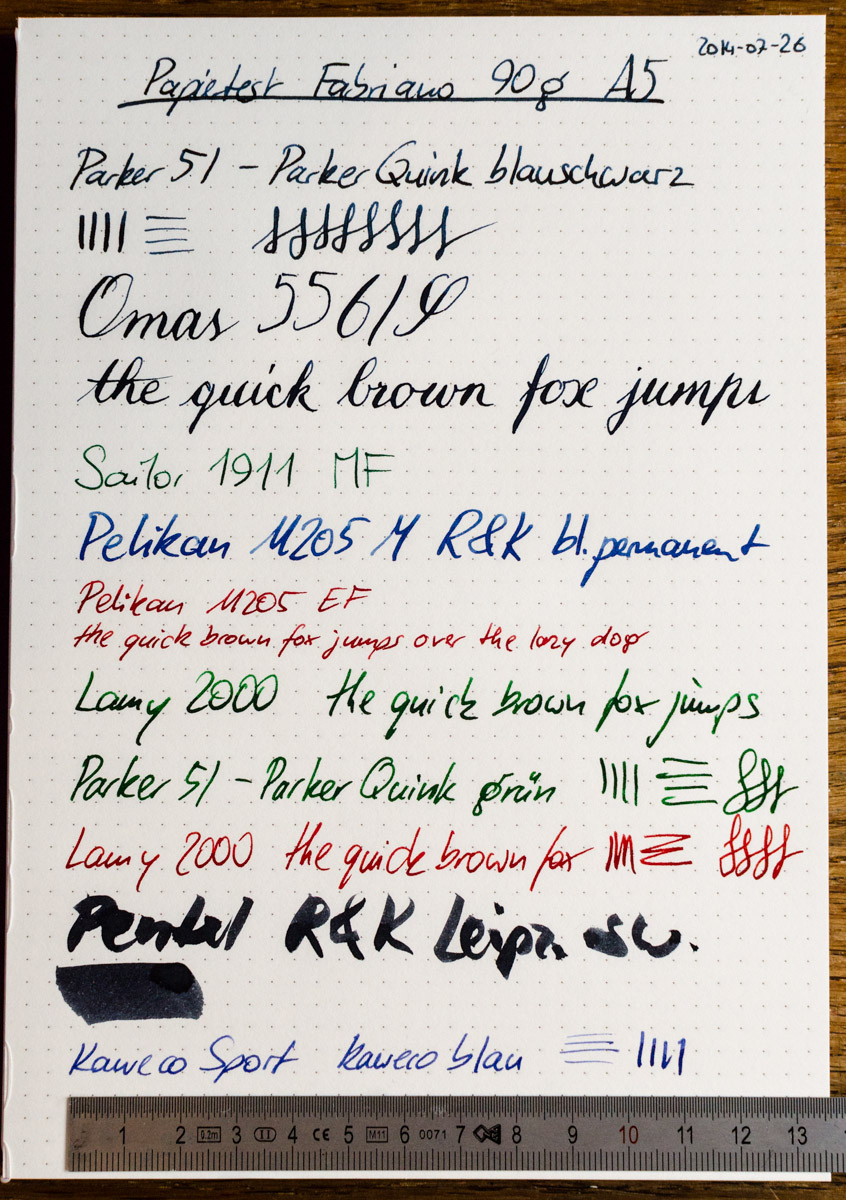 2014-07-26
Papiertest Fabriano 90g A5
Parker 51 - Parker Quink blauschwarz
Omas 556/S
the quick brown fox jumps
Sailor 1911 MF
Pelikan M205 M R&K bl. permanent
Pelikan M205 EF
the quick brown fox jumps over the lazy dog
Lamy 2000 the quick brown fox jumps
Parker 51 - Parker Quink grün
Lamy 2000 the quick brown fox
Pentel R&K Leipz. sw.
Kaweco Sport Kaweco blau
1 2 0.2m 3 II 4 CE 5 M11 6 0071 7 8 9 10 11 12 13